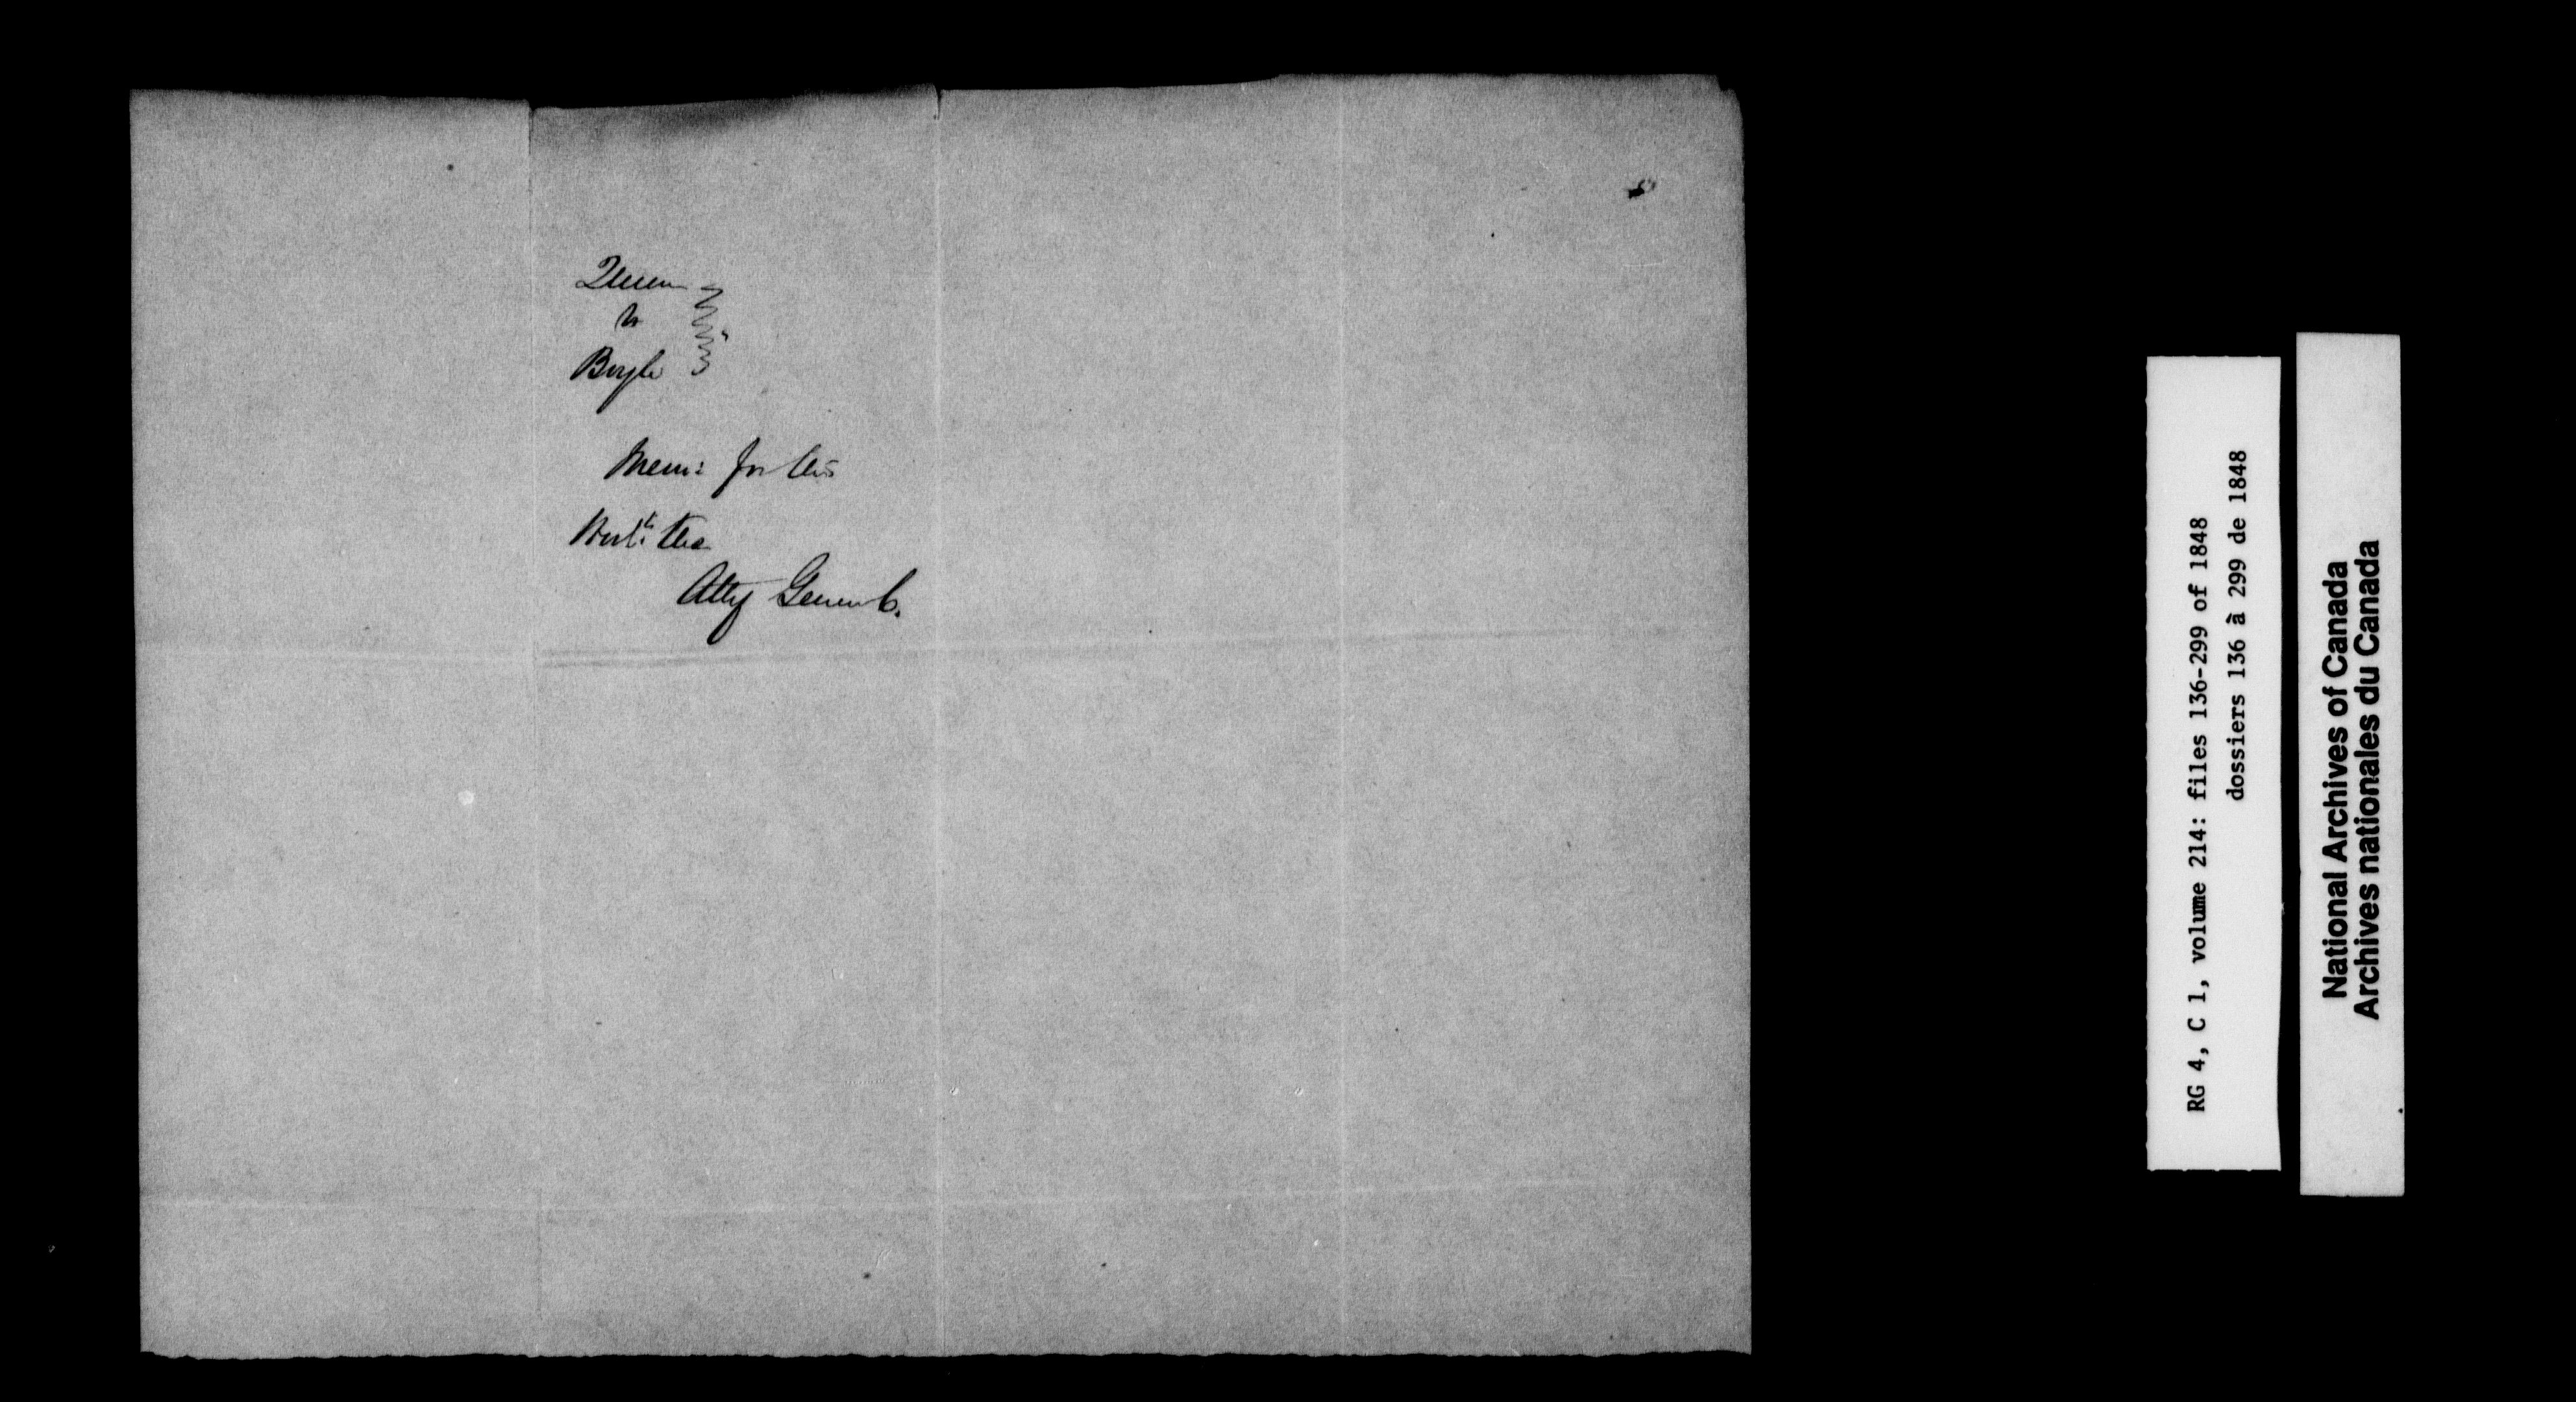 Queen
vs
Boyle
Mem: for the
Atty General.
RG 4, C 1, volume 214: files 136-299 of 1848
dossiers 136 à 299 de 1848
National Archives of Canada
Archives nationales du Canada